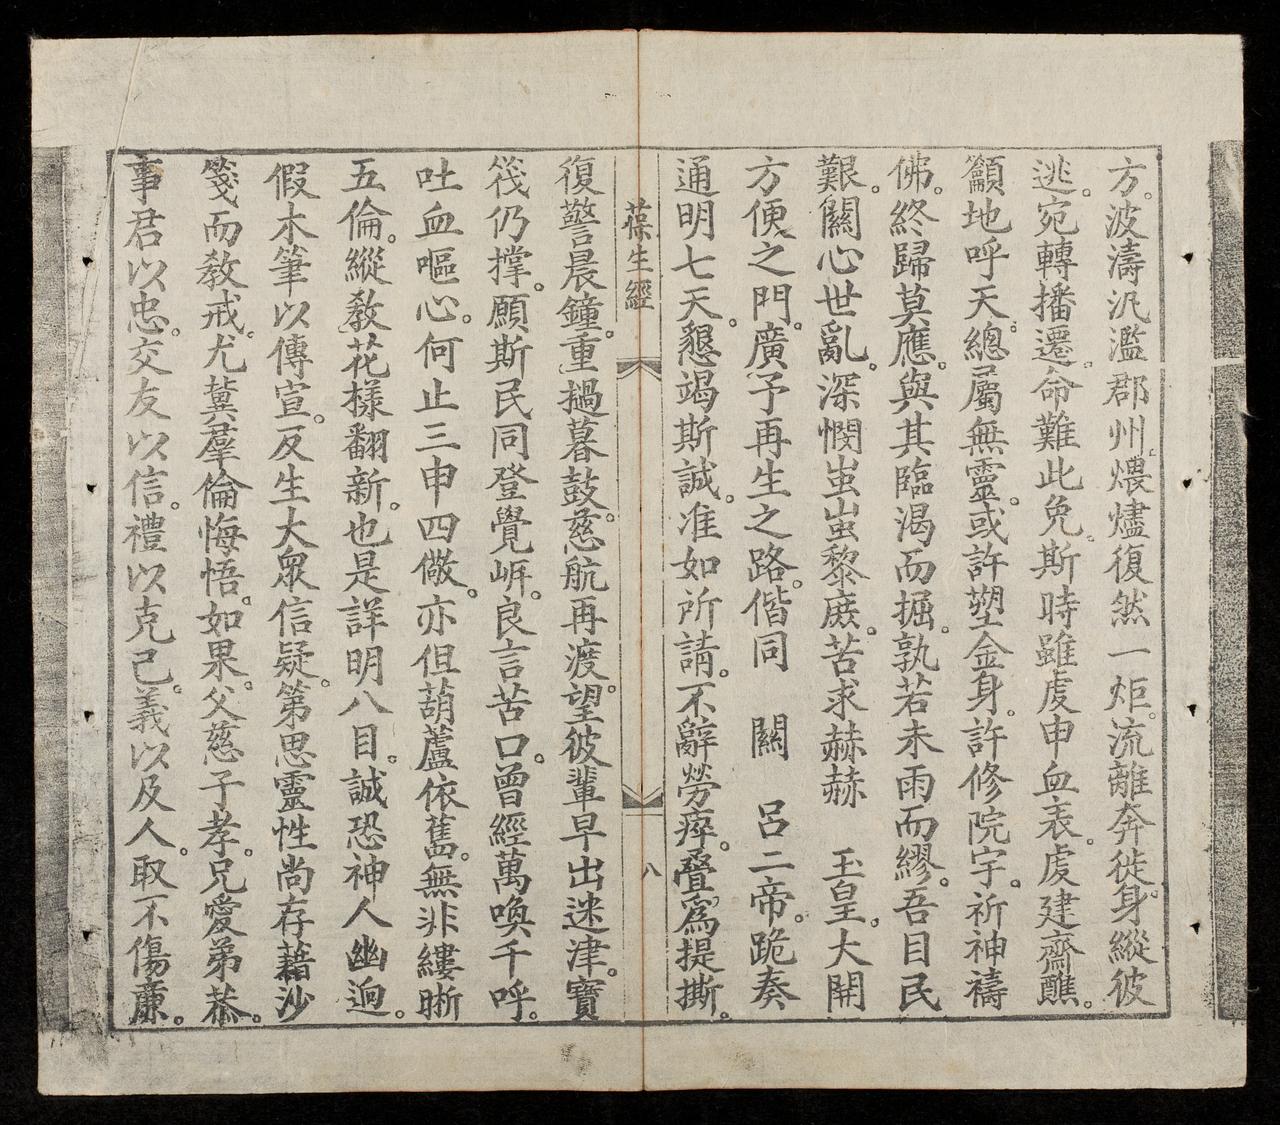 方。波濤汎濫郡州。煨燼復然一炬。流離奔徙。身縱彼
逃。宛轉播遷。命難此免。斯時雖虔申血表。虔建齋醮。
籲地呼天。總屬無靈。或許塑金身。許修院宇。祈神禱
佛。終歸莫應。與其臨渴而掘。孰若未雨而繆。吾目民
艱。關心世亂。深憫蚩蚩黎庶。苦求赫赫　玉皇。大開
方便之門。廣予再生之路。偕同　關　呂二帝。跪奏
通明七天。懇竭斯誠。准如所請。不辭勞瘁。疊為提撕。
葆生經
八
復警晨鐘。重撾暮鼓。慈航再渡。望彼輩早出迷津。寶
筏仍撐。願斯民同登覺岍。良言苦口。曾經萬喚千呼。
吐血嘔心。何止三申四儆。亦但葫蘆依舊。無非縷晰
五倫。縱教花樣翻新。也是詳明八目。誠恐神人幽迥。
假木筆以傳宣。反生大眾信疑。第思靈性尚存。藉沙
箋而教戒。尤冀羣倫悔悟。如果。父慈子孝。兄愛弟恭。
事君以忠。交友以信。禮以克己。義以及人。取不傷廉。